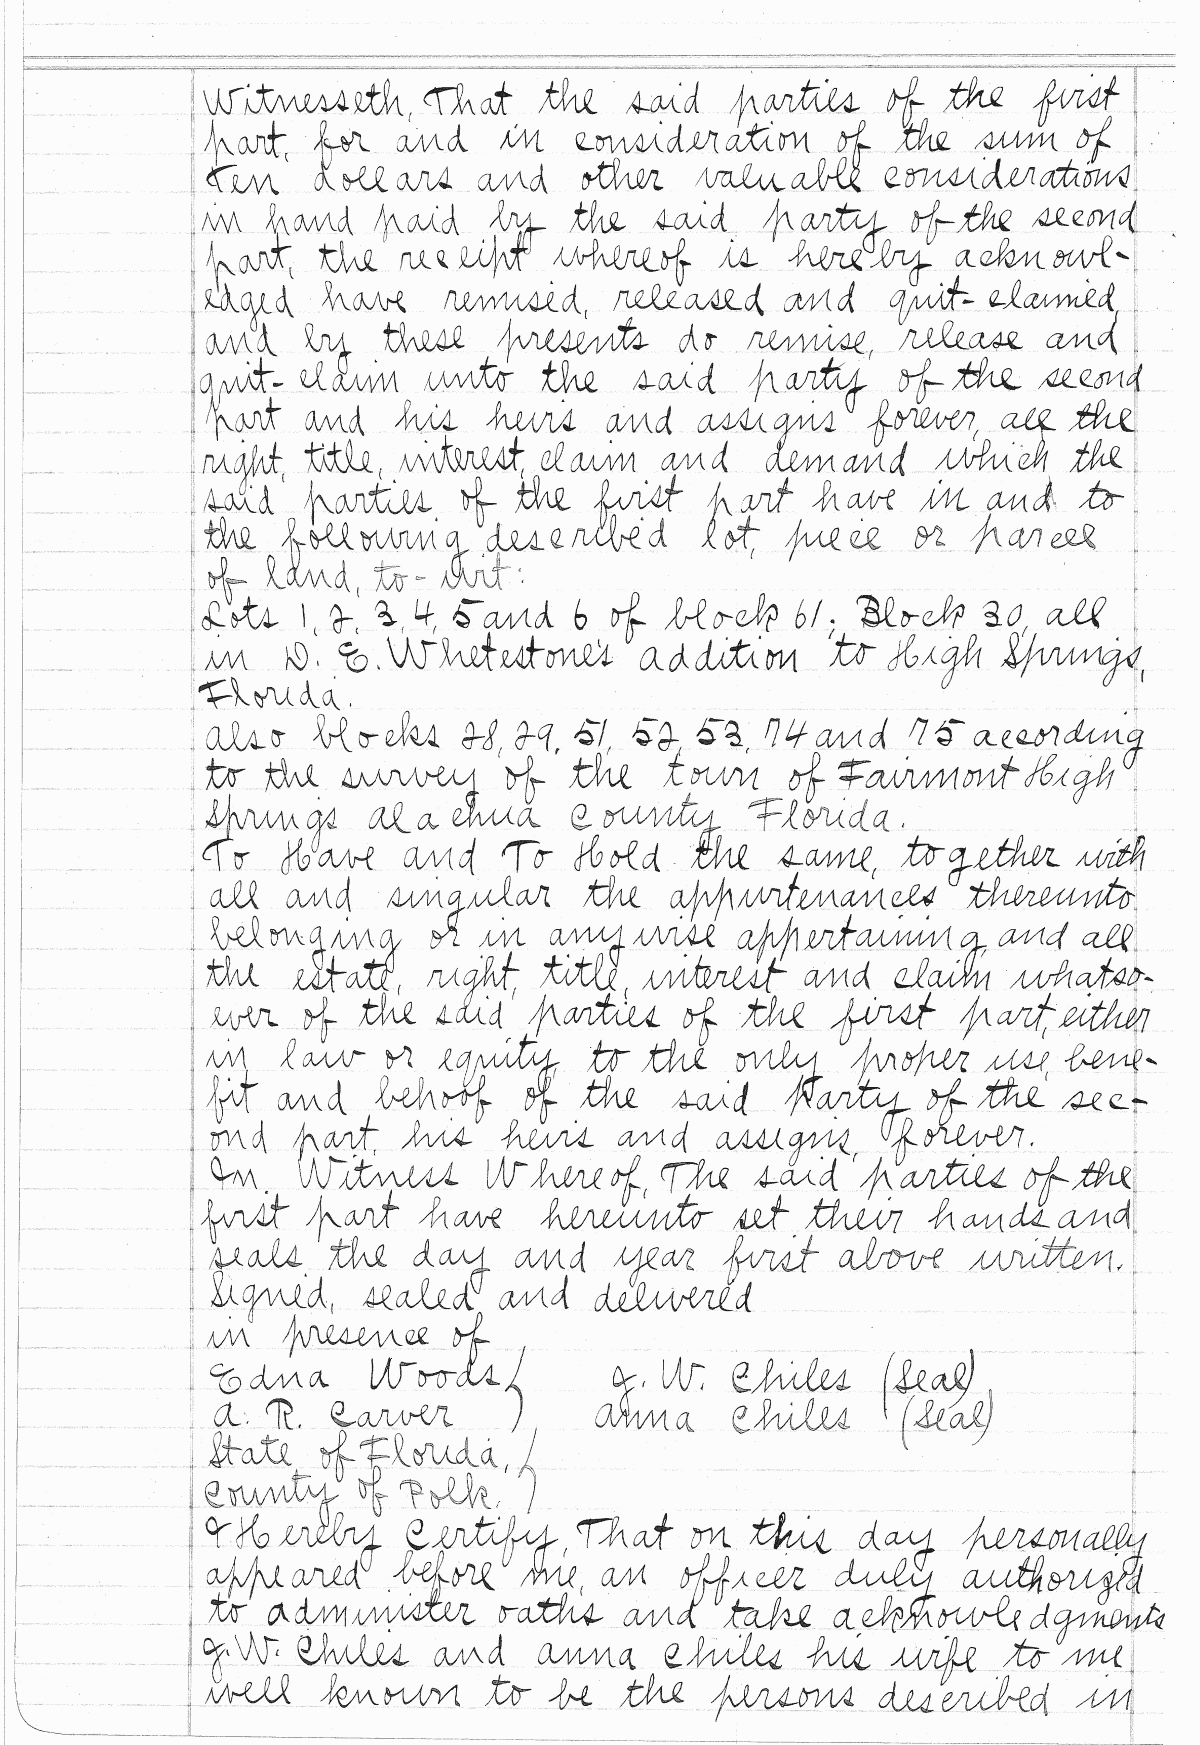 Witnesseth, That the said parties of the first
part, for and in consideration of the sum of
Ten dollars and other valuable considerations
in hand paid by the said party of the second
part, the receipt whereof is hereby acknowl-
edged have remised, released and quit-claimed,
and by these presents do remise, release and
quit-claim unto the said party of the second
part and his heirs and assigns forever, all the
right, title, interest, claim and demand which the
said parties of the first part have in and to
the following described lot, piece or parcel
of land, to-wit:
Lots 1, 2, 3, 4, 5 and 6 of block 61; Block 30, all
in D. E. Whetestone's addition to High Springs,
Florida.
also blocks 28, 29, 51, 52, 53, 74 and 75 according
to the survey of the town of Fairmont High
Springs Alachua County Florida.
To Have and To Hold the same, together with
all and singular the appurtenances thereunto
belonging or in anywise appertaining, and all
the estate, right, title, interest and claim whatso-
ever of the said parties of the first part, either
in law or equity to the only proper use, bene-
fit and behoof of the said Party of the sec-
ond part, his heirs and assigns, forever.
In Witness Whereof, The said parties of the
first part have hereunto set their hands and
seals the day and year first above written.
Signed, sealed and delivered
in presence of
Edna Woods ) J. W. Chiles (Seal)
A. R. Carver ) Anna Chiles (Seal)
State of Florida, )
County of Polk. )
I Hereby Certify, That on this day personally
appeared before me, an officer duly authorized
to administer oaths and take acknowledgments
J. W. Chiles and Anna Chiles his wife to me
well known to be the persons described in